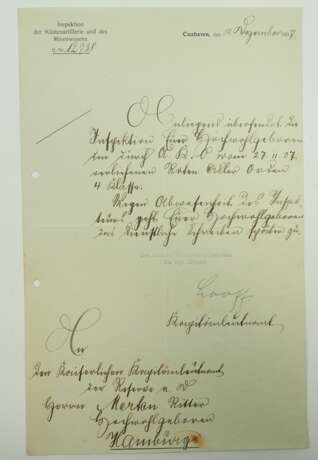 Inspektion
der Küstenartillerie und des
Minenwesens.
B. Nr. 12738
Cuxhaven, den Dezember 07.
Anliegend übersendet die
Inspektion Euer Hochwohlgeboren
den durch A. K. O. vom 27. 11. 07.
verliehenen Roten Adler Orden
4 Klasse.
Wegen Abwesenheit des Inspek-
teurs geht Euer Hochwohlgeboren
das dienstliche Schreiben später zu.
Looff
Kapitänleutnant
An
den Kaiserlichen Kapitänleutnant
der Reserve a. D.
Herrn Merten Ritter
Hochwohlgeboren
Hamburg